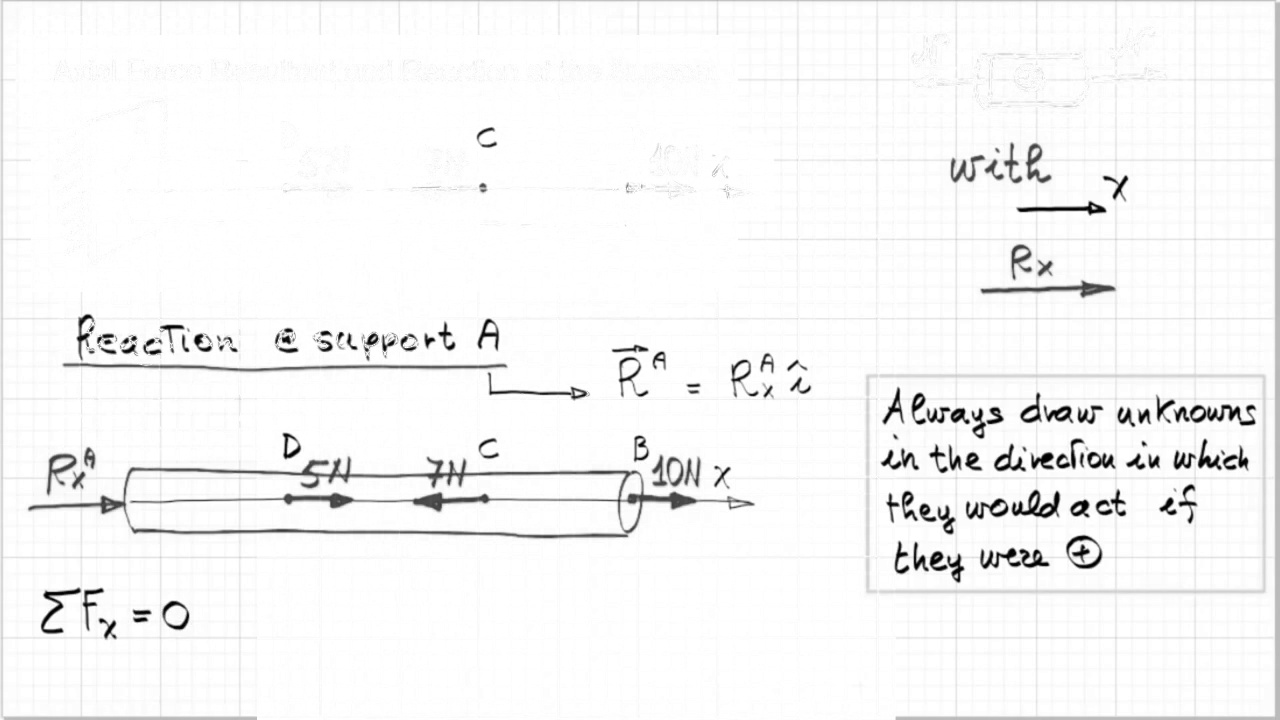 Axial Force Resultant and Reaction at the Support
C
5N 7N 10N x
with x
Rx
Reaction @ support A
R^A = Rx^A î
Always draw unknowns
in the direction in which
they would act if
they were ⊕
D C B
Rx^A 5N 7N 10N x
ΣFx = 0